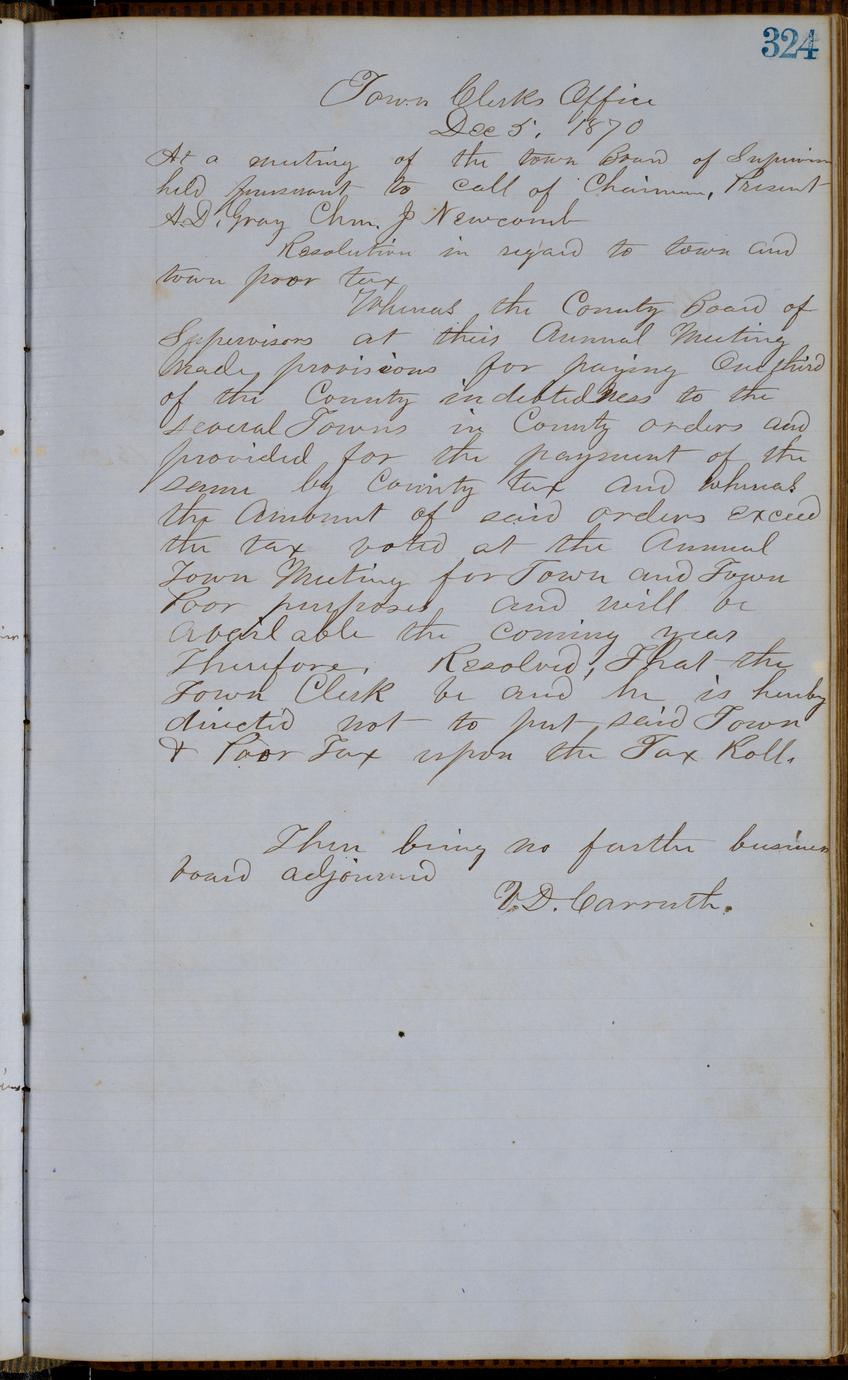 324
Town Clerks Office
Dec 5, 1870
At a meeting of the town Board of Supervisors
held pursuant to call of Chairman, Present
A.D. Gray Chm. J Newcomb
Resolution in regard to town and
town poor tax
Whereas the County Board of
Supervisors at their Annual Meeting
made provisions for paying One third
of the County indebtedness to the
several Towns in County orders and
provided for the payment of the
same by County tax and whereas
the Amount of said orders exceed
the tax voted at the Annual
Town Meeting for Town and Town
Poor purposes and will be
available the coming year
Therefore, Resolved, That the
Town Clerk be and he is hereby
directed not to put said Town
& Poor Tax upon the Tax Roll.
There being no further business
board adjourned
D. Carruth.